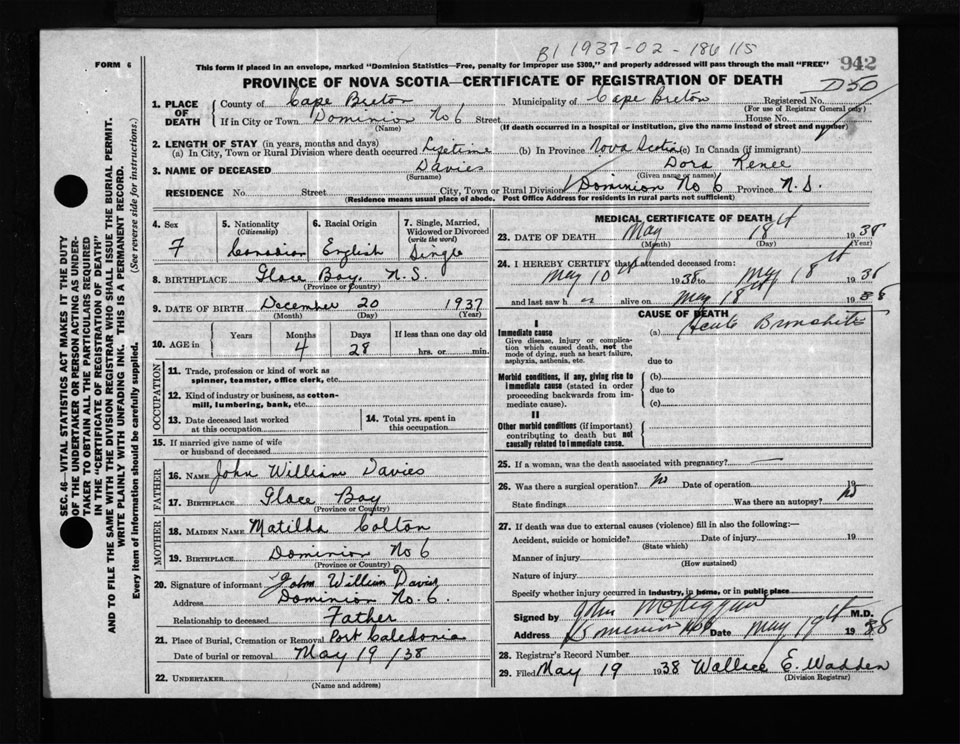 B1 1937-02-186115
FORM 6
This form if placed in an envelope, marked "Dominion Statistics—Free, penalty for improper use $300," and properly addressed will pass through the mail "FREE"
942
PROVINCE OF NOVA SCOTIA—CERTIFICATE OF REGISTRATION OF DEATH
D50
1. PLACE OF DEATH
County of Cape Breton Municipality of Cape Breton Registered No.
(For use of Registrar General only)
If in City or Town Dominion No 6 Street House No.
(Name) (If death occurred in a hospital or institution, give the name instead of street and number)
2. LENGTH OF STAY (in years, months and days)
(a) In City, Town or Rural Division where death occurred Lifetime (b) In Province Nova Scotia (c) In Canada (if immigrant)
3. NAME OF DECEASED Davies Dora Renee
(Surname) (Given name or names)
RESIDENCE No. Street City, Town or Rural Division Dominion No 6 Province N.S.
(Residence means usual place of abode. Post Office Address for residents in rural parts not sufficient)
4. Sex F
5. Nationality (Citizenship) Canadian
6. Racial Origin English
7. Single, Married, Widowed or Divorced (write the word) Single
8. BIRTHPLACE Glace Bay, N.S.
(Province or Country)
9. DATE OF BIRTH December 20 1937
(Month) (Day) (Year)
10. AGE in Years Months 4 Days 28 If less than one day old hrs. or min.
OCCUPATION
11. Trade, profession or kind of work as spinner, teamster, office clerk, etc.
12. Kind of industry or business, as cotton-mill, lumbering, bank, etc.
13. Date deceased last worked at this occupation
14. Total yrs. spent in this occupation
15. If married give name of wife or husband of deceased
FATHER
16. NAME John William Davies
17. BIRTHPLACE Glace Bay
(Province or Country)
MOTHER
18. MAIDEN NAME Matilda Colton
19. BIRTHPLACE Dominion No 6
(Province or Country)
20. Signature of informant John William Davies
Address Dominion No. 6.
Relationship to deceased Father
21. Place of Burial, Cremation or Removal Port Caledonia
Date of burial or removal May 19/38
22. UNDERTAKER
(Name and address)
MEDICAL CERTIFICATE OF DEATH
23. DATE OF DEATH May 18th 1938
(Month) (Day) (Year)
24. I HEREBY CERTIFY that I attended deceased from:
May 10th 1938 to May 18th 1938
and last saw h er alive on May 18th 1938
CAUSE OF DEATH
I
Immediate cause (a) Acute Bronchitis
Give disease, injury or complication which caused death, not the mode of dying, such as heart failure, asphyxia, asthenia, etc.
due to
Morbid conditions, if any, giving rise to immediate cause (stated in order proceeding backwards from immediate cause).
(b)
due to
(c)
II
Other morbid conditions (if important) contributing to death but not causally related to immediate cause.
25. If a woman, was the death associated with pregnancy? —
26. Was there a surgical operation? No Date of operation 19
State findings Was there an autopsy? No
27. If death was due to external causes (violence) fill in also the following:—
Accident, suicide or homicide? Date of injury 19
(State which)
Manner of injury
(How sustained)
Nature of injury
Specify whether injury occurred in industry, in home, or in public place
Signed by John M.D.
Address Dominion No 6 Date May 19th 1938
28. Registrar's Record Number
29. Filed May 19 1938 Wallace E. Wadden
(Division Registrar)
SEC. 46—VITAL STATISTICS ACT MAKES IT THE DUTY
OF THE UNDERTAKER OR PERSON ACTING AS UNDER-
TAKER TO OBTAIN ALL THE PARTICULARS REQUIRED
IN THE "CERTIFICATE OF REGISTRATION OF DEATH"
AND TO FILE THE SAME WITH THE DIVISION REGISTRAR WHO SHALL ISSUE THE BURIAL PERMIT.
WRITE PLAINLY WITH UNFADING INK. THIS IS A PERMANENT RECORD.
Every item of information should be carefully supplied. (See reverse side for instructions.)